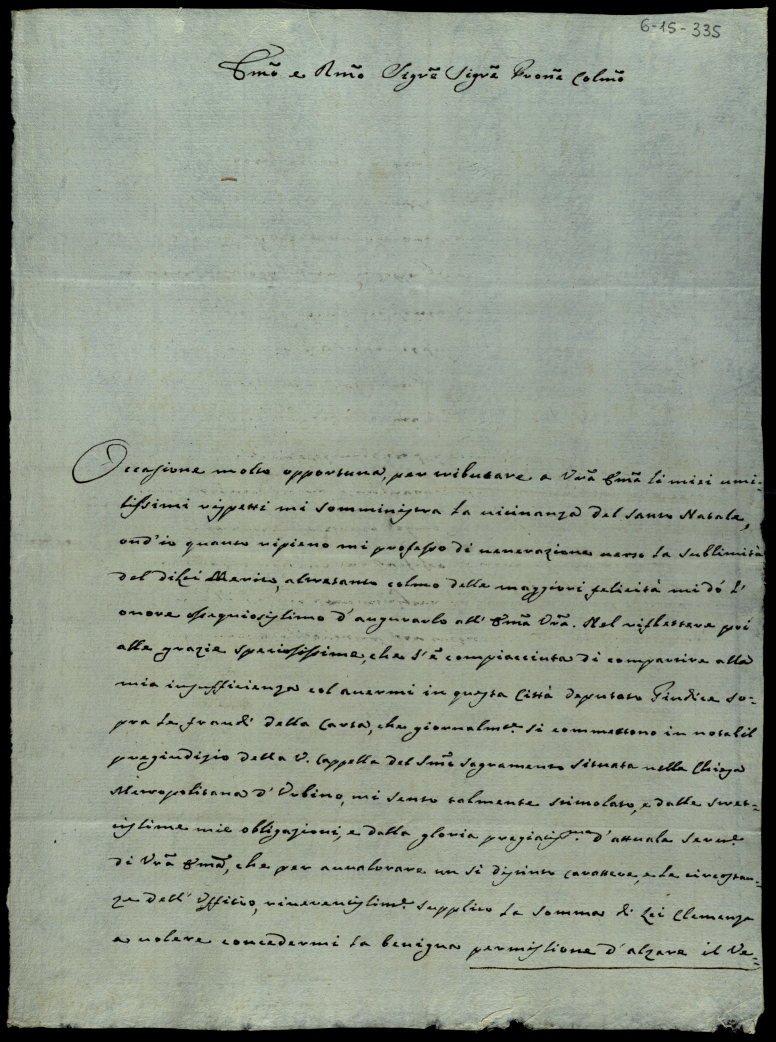 6-15-335
Emõ e Rmõ Sigrẽ Sigrẽ Prone Colmõ
Occasione molto opportuna, per tributare a Vrã Emã li miei umi-
lissimi rispetti mi somministra la vicinanza del Santo Natale,
ond'io quanto ripieno mi professo di venerazione verso la sublimità
del di Lei Merito, altretanto colmo delle maggiori felicità mi dò l'
onore ossequiosissimo d'augurarlo all' Emã Vrã. Nel riflettere poi
alle grazie speciosissime, che s'è compiacciuta di compartire alla
mia insufficienza col avermi in questa Città deputato Giudice so-
pra le fraudi della Carta, che giornalmte. si commettono in notabil
pregiudizio della V. Cappella del Smõ Sagramento situata nella Chiesa
Metropolitana d'Urbino, mi sento talmente stimolato, e dalle stret-
tissime mie obligazioni, e dalla gloria pregiatissma d'attuale Serve.
di Vrã Emã, che per avvalorare un sì distinto carattere, e le circostan-
ze dell' Uffitio, riverentissime. supplico la somma di Lei Clemenza
a volere concedermi la benigna permissione d'alzare il Ve-